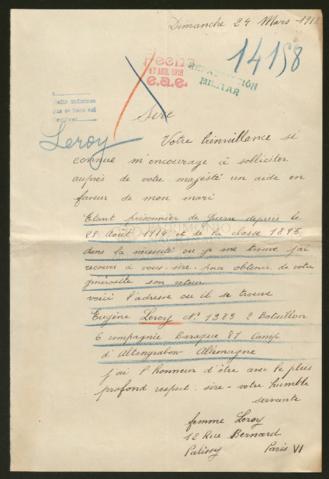 Dimanche 24 Mars 1918
14158
Recibido
17 ABR. 1918
e.a.e.
REPATRIACIÓN
MILITAR
Leroy
Sire
Votre bienveillance si
connue m'encourage à solliciter
auprès de votre majesté un aide en
faveur de mon mari
Etant prisonnier de Guerre depuis le
28 Août 1914 et de la classe 1895,
dans la nécessité ou je me trouve j'ai
recours à vous sire pour obtenir de votre
générosité son retour
voici l'adresse ou il se trouve
Eugène Leroy No 1383 2 Bataillon
6 compagnie Baraque 87 Camp
d'Altengrabow Allemagne
j'ai l'honneur d'être avec le plus
profond respect. sire - votre humble
servante
femme Leroy
12 Rue Bernard
Palissy Paris VI